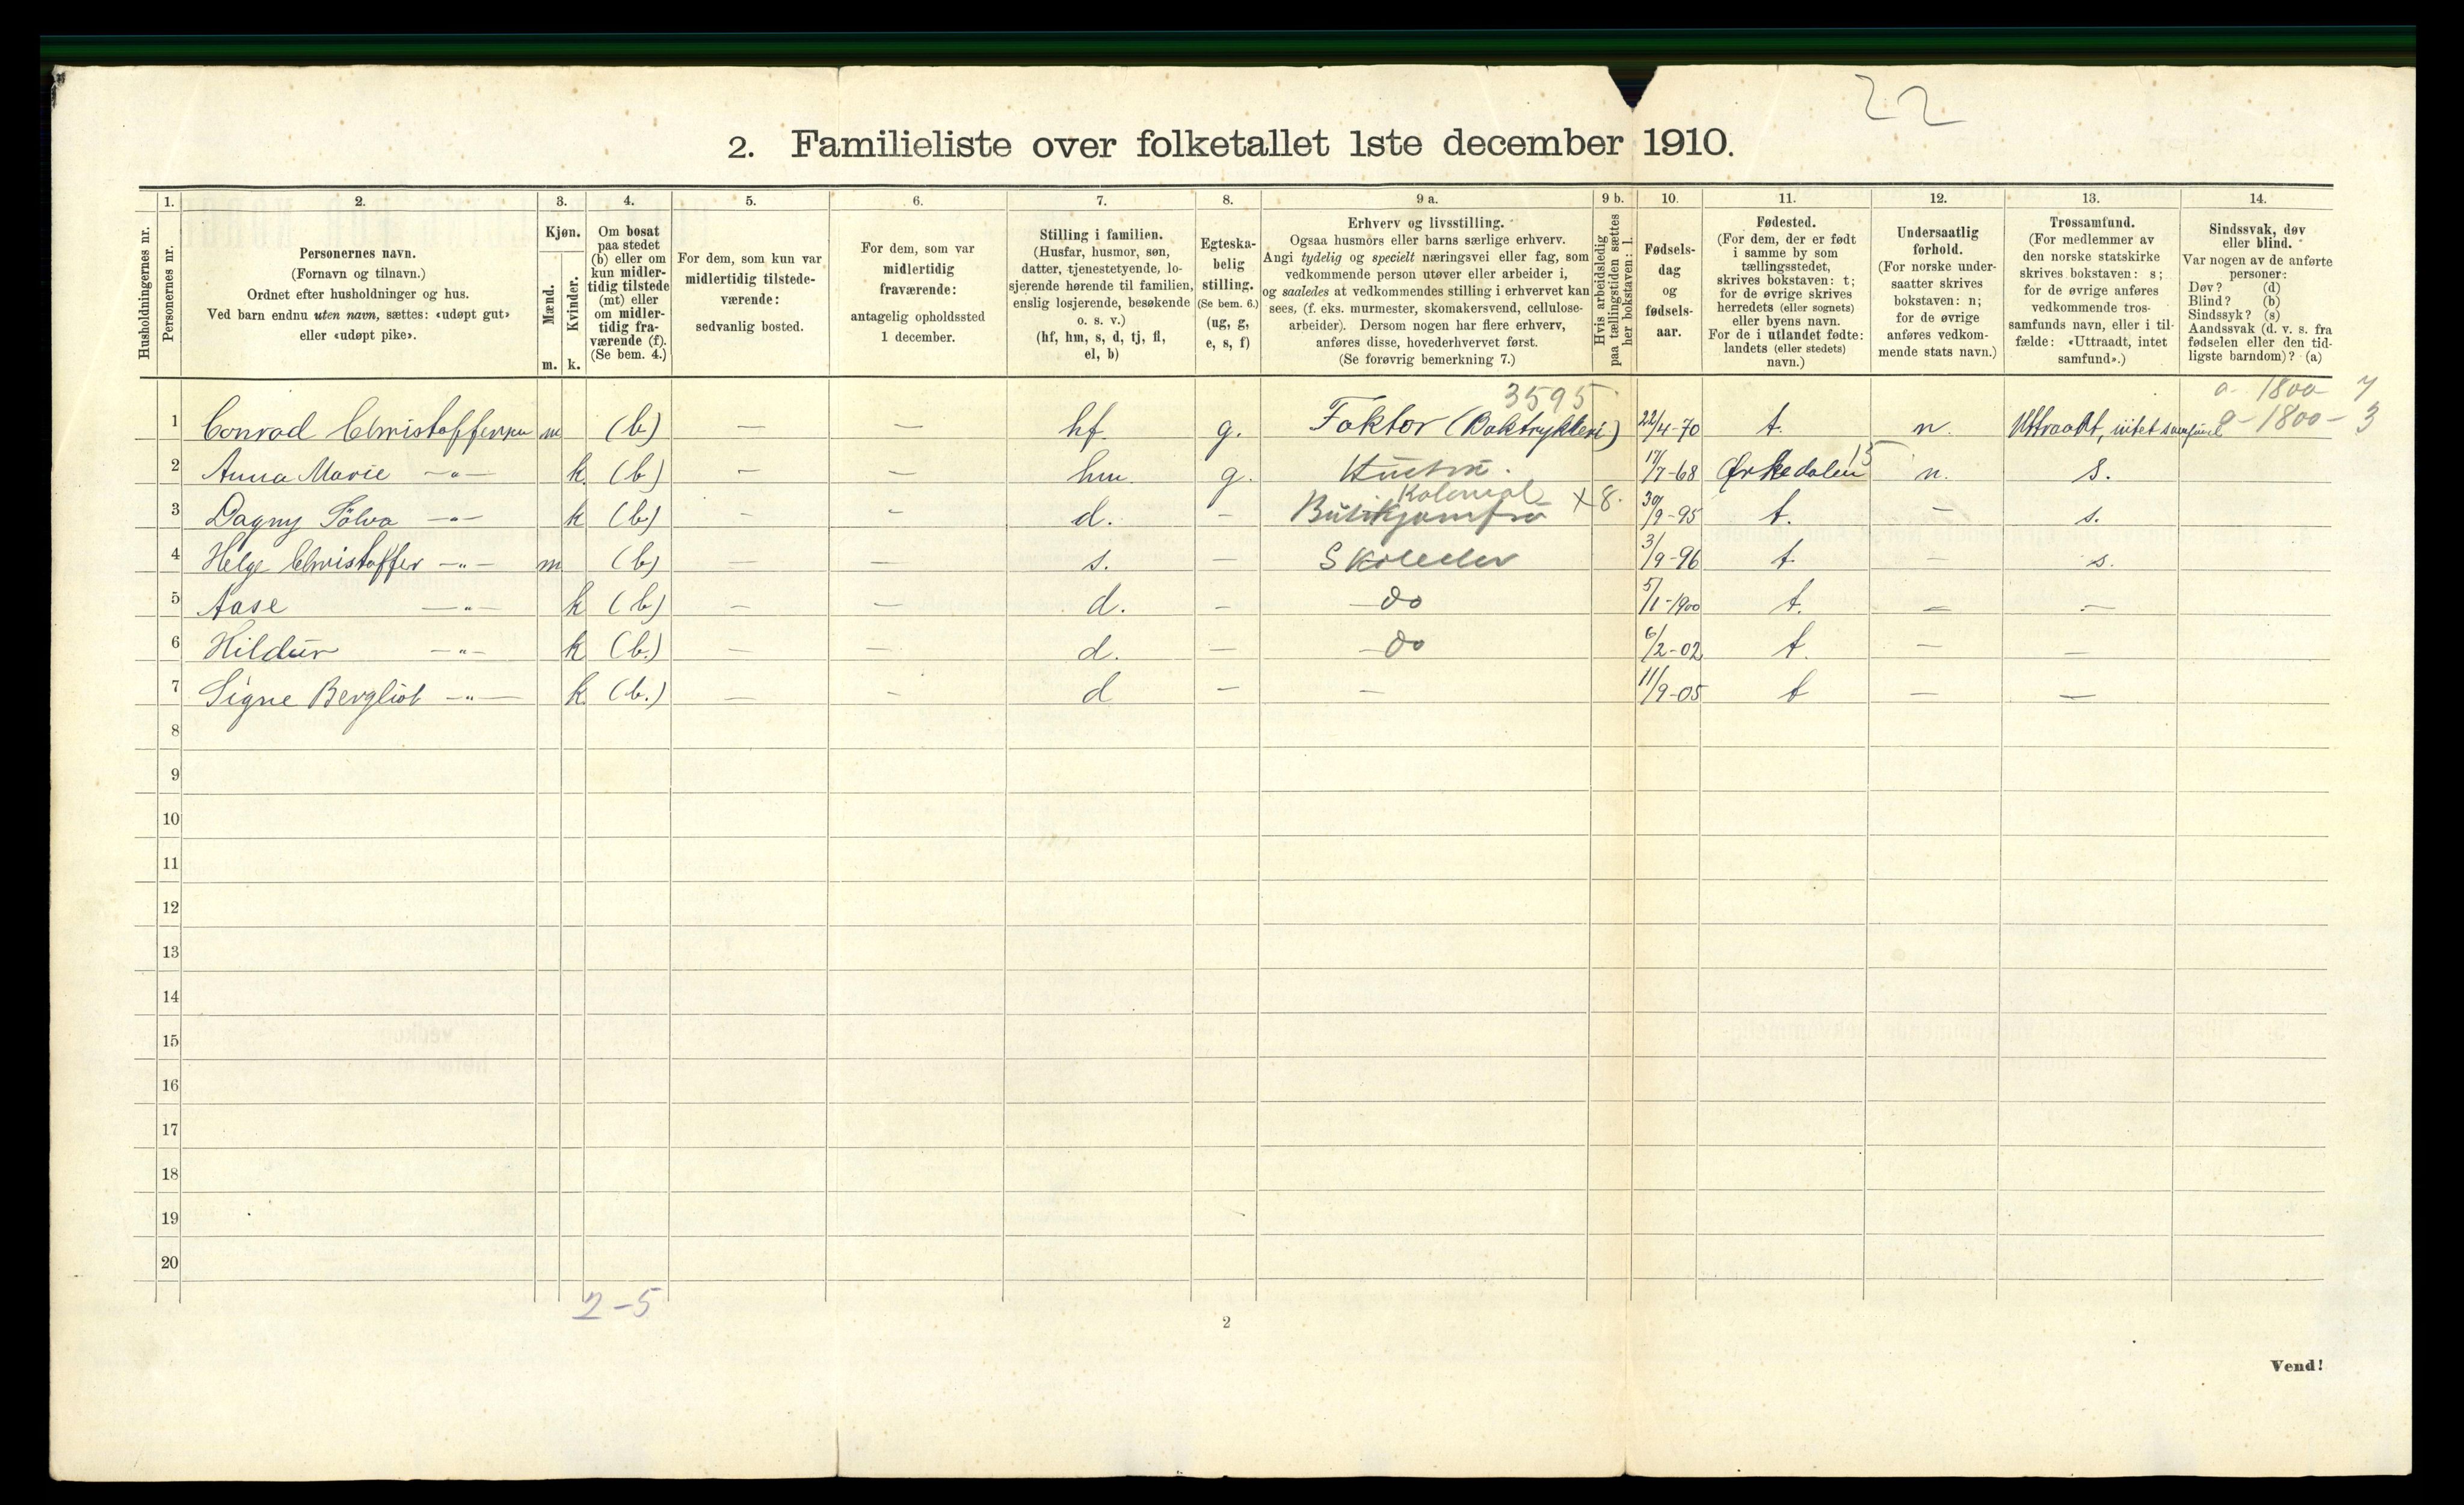 22
2. Familieliste over folketallet 1ste december 1910.
Husholdningernes nr.
1. Personernes nr.
2. Personernes navn. (Fornavn og tilnavn.) Ordnet efter husholdninger og hus. Ved barn endnu uten navn, sættes: «udøpt gut» eller «udøpt pike».
3. Kjøn. Mænd. m. Kvinder. k.
4. Om bosat paa stedet (b) eller om kun midlertidig tilstede (mt) eller om midlertidig fraværende (f). (Se bem. 4.)
5. For dem, som kun var midlertidig tilstedeværende: sedvanlig bosted.
6. For dem, som var midlertidig fraværende: antagelig opholdssted 1 december.
7. Stilling i familien. (Husfar, husmor, søn, datter, tjenestetyende, losjerende hørende til familien, enslig losjerende, besøkende o. s. v.) (hf, hm, s, d, tj, fl, el, b)
8. Egteskabelig stilling. (Se bem. 6.) (ug, g, e, s, f)
9 a. Erhverv og livsstilling. Ogsaa husmors eller barns særlige erhverv. Angi tydelig og specielt næringsvei eller fag, som vedkommende person utøver eller arbeider i, og saaledes at vedkommendes stilling i erhvervet kan sees, (f. eks. murmester, skomakersvend, cellulosearbeider). Dersom nogen har flere erhverv, anføres disse, hovederhvervet først. (Se forøvrig bemerkning 7.)
9 b. Hvis arbeidsledig paa tællingstiden sættes her bokstaven: l.
10. Fødselsdag og fødselsaar.
11. Fødested. (For dem, der er født i samme by som tællingsstedet, skrives bokstaven: t; for de øvrige skrives herredets (eller sognets) eller byens navn. For de i utlandet fødte: landets (eller stedets) navn.)
12. Undersaatlig forhold. (For norske undersaatter skrives bokstaven: n; for de øvrige anføres vedkommende stats navn.)
13. Trossamfund. (For medlemmer av den norske statskirke skrives bokstaven: s; for de øvrige anføres vedkommende trossamfunds navn, eller i tilfælde: «Uttraadt, intet samfund».)
14. Sindssvak, døv eller blind. Var nogen av de anførte personer: Døv? (d) Blind? (b) Sindssyk? (s) Aandssvak (d. v. s. fra fødselen eller den tidligste barndom)? (a)
3595 0 - 1800 - 7
1 Conrad Christoffersen m (b) — — hf. g. Faktor (Boktrykkeri) 22/4-70 t. n. Uttraadt, intet samfund 0 - 1800 - 3
2 Anna Marie —"— k. (b) — — hm. g. Hustru. 17/7-68 Ørkedalen 15 n. s.
Kolonial x8.
3 Dagny Sölva —"— k (b) — - d. — Butikjomfru 30/9-95 t. — s.
4 Helge Christoffer —"— m (b) — — s. — Skoleelev 3/9-96 t. — s.
5 Aase —"— k (b) — — d. — do 5/1-1900 t. — —
6 Hildur —"— k (b.) — — d. — do 6/2-02 t. — —
7 Signe Bergliot —"— k. (b.) — — d — — 11/9-05 t — —
8
9
10
11
12
13
14
15
16
17
18
19
20
2-5
2
Vend!